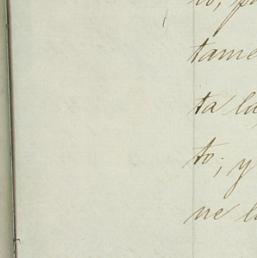 to, p
tame
ta la
to; y
ne l